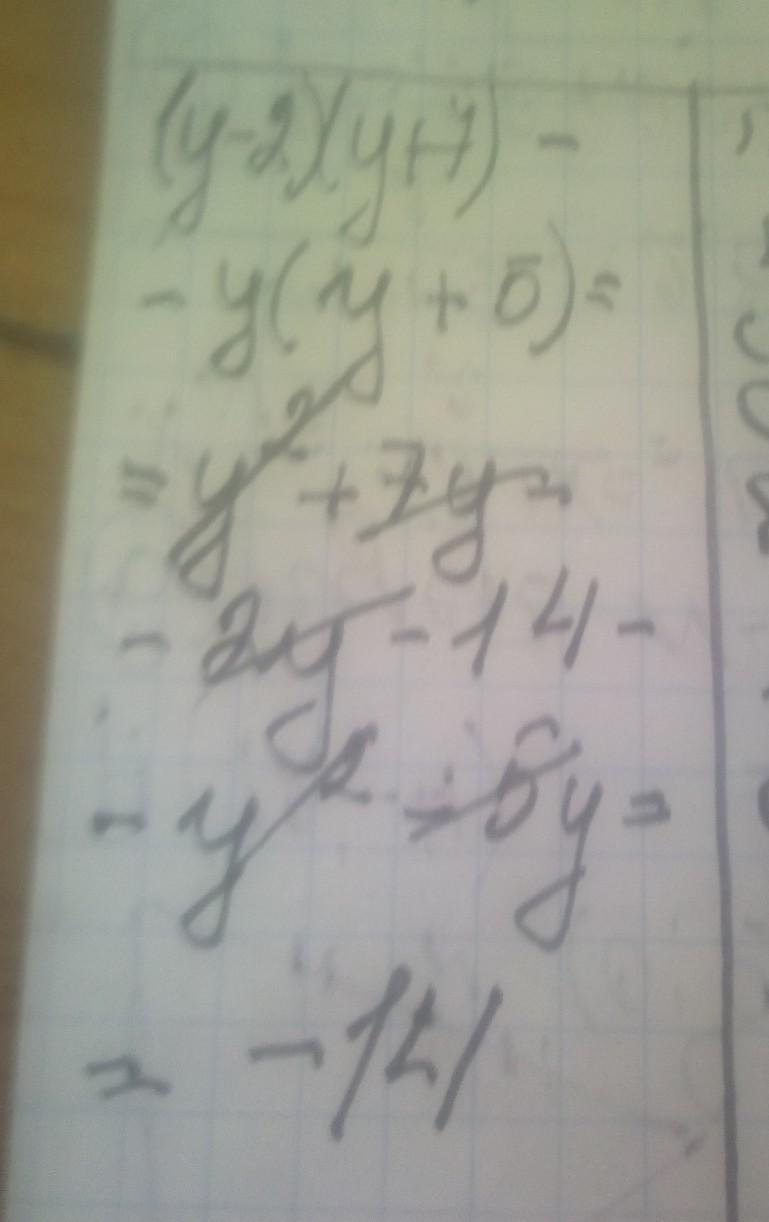 (y-2)(y+7) -
- y(y + 5) =
= y² + 7y -
- 2y - 14 -
- y² - 5y =
= -14